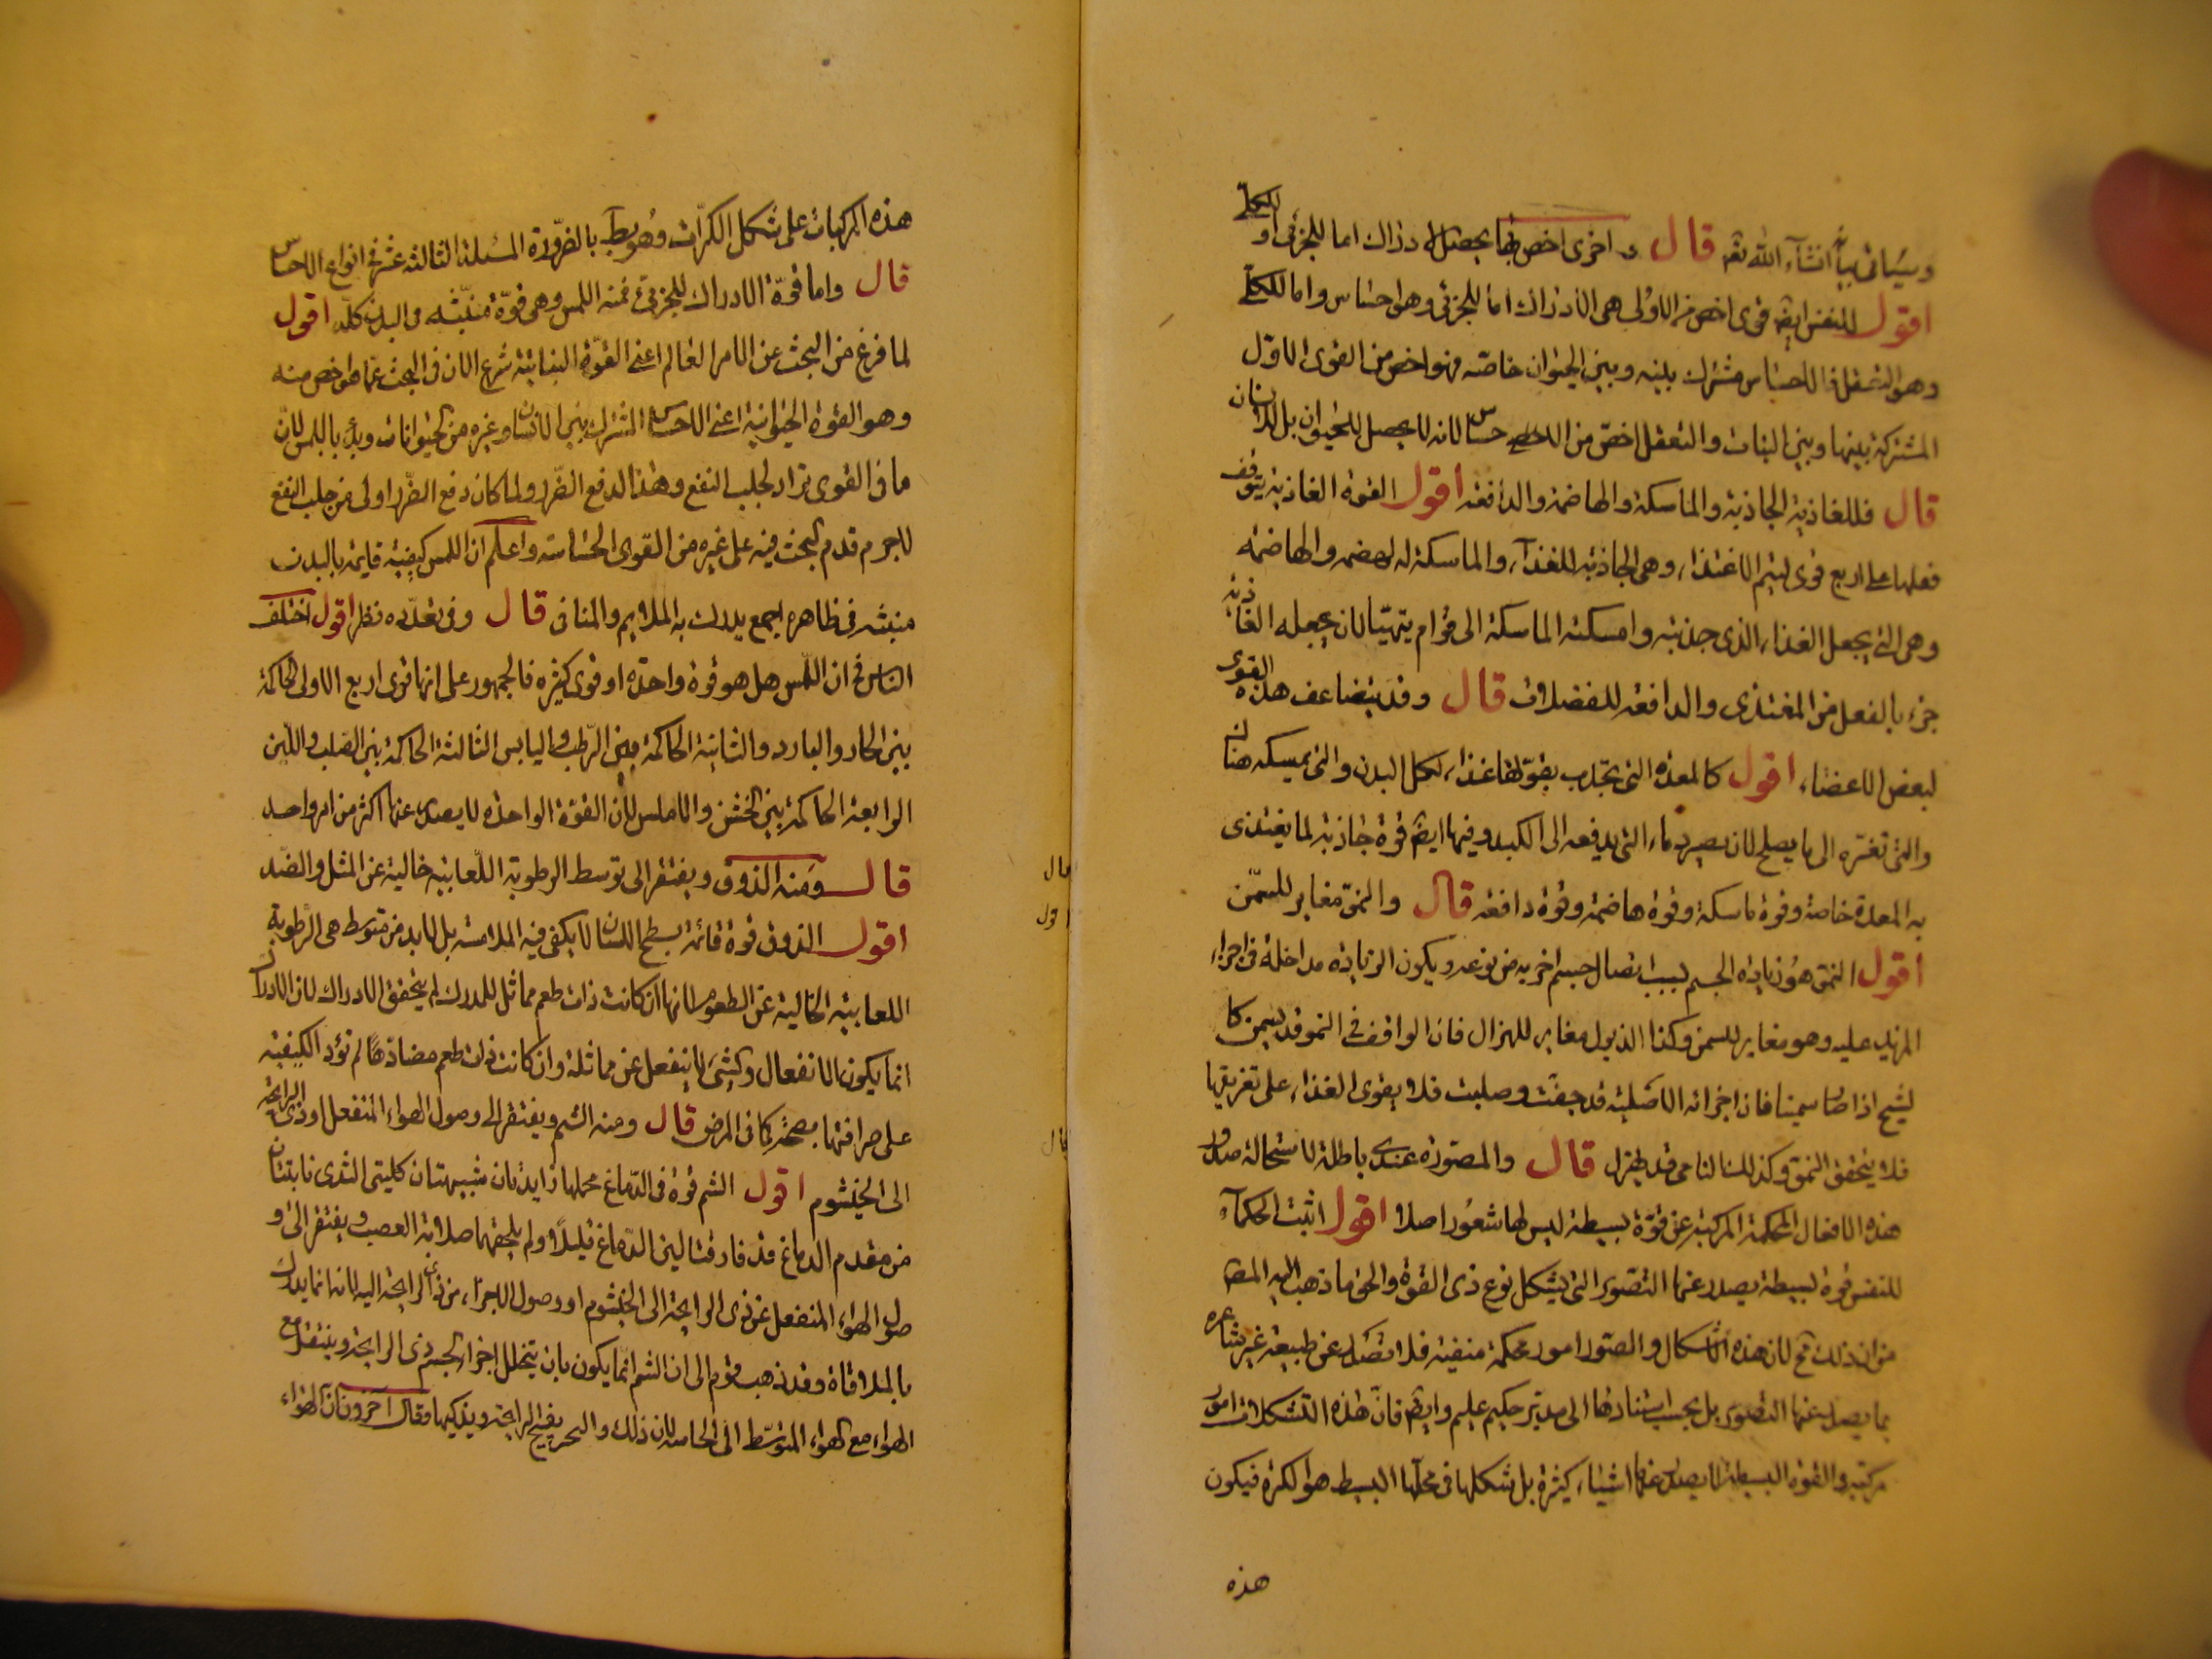 وسياتى بيانه انشاء الله تعالى قال و اخرى اخص بها يحصل الادراك اما للجزئى او للكلى
اقول للنفس ايضا قوى اخص من الاولى هى الادراك اما للجزئى وهو احساس واما للكلى
وهو التعقل فالاحساس مشترك بينه وبين الحيوان خاصة فهو اخص من القوى الاول
المشتركة بينها وبين النبات والتعقل اخص من الاحساس لانه لا يحصل للحيوان بل للانسان
قال فللغاذية الجاذبة والماسكة والهاضمة والدافعة اقول القوة الغاذية يتوقف
فعلها على اربع قوى ليتم الاغتذاء وهى الجاذبة للغذاء والماسكة له لهضمه والهاضمة
وهى التى يجعل الغذاء الذى جذبته وامسكته الماسكة الى قوام يتهيا لان يجعله الغاذية
جزء بالفعل من المغتذى والدافعة للفضلات قال وقد يتضاعف هذه القوى
لبعض الاعضاء اقول كالمعدة التى تجذب بقوتها غذاء لكل البدن والتى يمسكه هناك
والتى تغيره الى ما يصلح لان يصير دماء التى يدفعه الى الكبد وفيها ايضا قوة جاذبة لما يغتذى
به المعدة خاصة وقوة ماسكة وقوة هاضمة وقوة دافعة قال والنمو مغاير للسمن
اقول النمو هو زيادة الجسم بسبب اتصال جسم اخر به من نوعه ويكون الزيادة مداخلة فى اجزاء
المزيد عليه وهو مغاير للسمن وكذا الذبول مغاير للهزال فان الواقف فى النمو قد يسمن كا
لشيخ اذا صار سمينا فان اجزائه الاصلية قد جفت وصلبت فلا يقوى الغذاء على تفريقها
فلا يتحقق النمو وكذلك النامى قد يهزل قال والمصورة عندى باطلة لاستحالة صدور
هذه الافعال المحكمة المركبة عن قوة بسيطة ليس لها شعور اصلا اقول اثبت الحكماء
للنفس قوة بسيطة يصدر عنها التصوير التى يشكل نوع ذى القوة والحق ما ذهب اليه المص
من ان ذلك مح لان هذه الاشكال والصور امور محكمة متقنة فلا تصدر عن طبيعة غير شاعرة
بما يصدر عنها التصوير بل يجب استنادها الى مدبر حكيم عليم وايضا فان هذه التشكلات امور
مركبة والقوة البسيطة لا يصدر عنها اشياء كثيرة بل شكلها فى محلها البسيط هو الكرة فيكون
هذه
هذه المركبات على شكل الكرات وهو بط بالضرورة المسئلة الثالثة عشر فى انواع الاحساس
قال واما قوة الادراك للجزئى فمنه اللمس وهى قوة منبثة فى البدن كله اقول
لما فرغ من البحث عن الامر العام اعنى القوة النباتية شرع الان فى البحث عما هو اخص منه
وهو القوة الحيوانية اعنى الاحساس المشترك بين الانسان وغيره من الحيوانات وبدء باللمس لان
ما فى القوى تراد لجلب النفع وهذا لدفع الضرر ولما كان دفع الضرر اولى من جلب النفع
لاجرم قدم البحث فيه على غيره من القوى الحساسة واعلم ان اللمس كيفية قايمة بالبدن
منبثة فى ظاهره اجمع يدرك به الملايم والمنافى قال وفى تعدده نظر اقول اختلف
الناس فى ان اللمس هل هو قوة واحدة او قوى كثيرة فالجمهور على انها قوى اربع الاولى الحاكمة
بين الحار والبارد والثانية الحاكمة بين الرطب واليابس الثالثة الحاكمة بين الصلب واللين
الرابعة الحاكمة بين الخشن والاملس لان القوة الواحدة لا يصدر عنها اكثر من امر واحد
قال ومنه الذوق ويفتقر الى توسط الرطوبة اللعابية خالية عن المثل والضد
اقول الذوق قوة قائمة بسطح اللسان لا يكفى فيه الملامسة بل لابد من متوسط هى الرطوبة
اللعابية الخالية عن الطعوم لانها ان كانت ذات طعم مماثل للمدرك لم يتحقق الادراك لان الادراك
انما يكون بالانفعال والشىء لا ينفعل عن مماثله وان كانت ذات طعم مضاد لها لم تؤد الكيفية
على صرافتها بصحة كما فى المرض قال ومنه الشم ويفتقر الى وصول الهواء المنفعل او ذى الرائحة
الى الخيشوم اقول الشم قوة فى الدماغ محلها زايدتان شبيهتان كليتى الثدى نابتتان
من مقدم الدماغ قد فارقتا لين الدماغ قليلا ولم يلحقهما صلابة العصب ويفتقر الى و
صول الهواء المنفعل عن ذى الرايحة الى الخيشوم او وصول الاجزاء من ذى الرايحة اليه لانه انما يدرك
بالملاقاة وقد ذهب قوم الى ان الشم انما يكون بان يتحلل اجزاء الجسم ذى الرايحة وينتقل مع
الهواء مع الهواء المتوسط الى الحاسة لان ذلك والتبخر يهيج الرايحة ويذكيها وقال اخرون ان الهواء
قال
اقول
قال